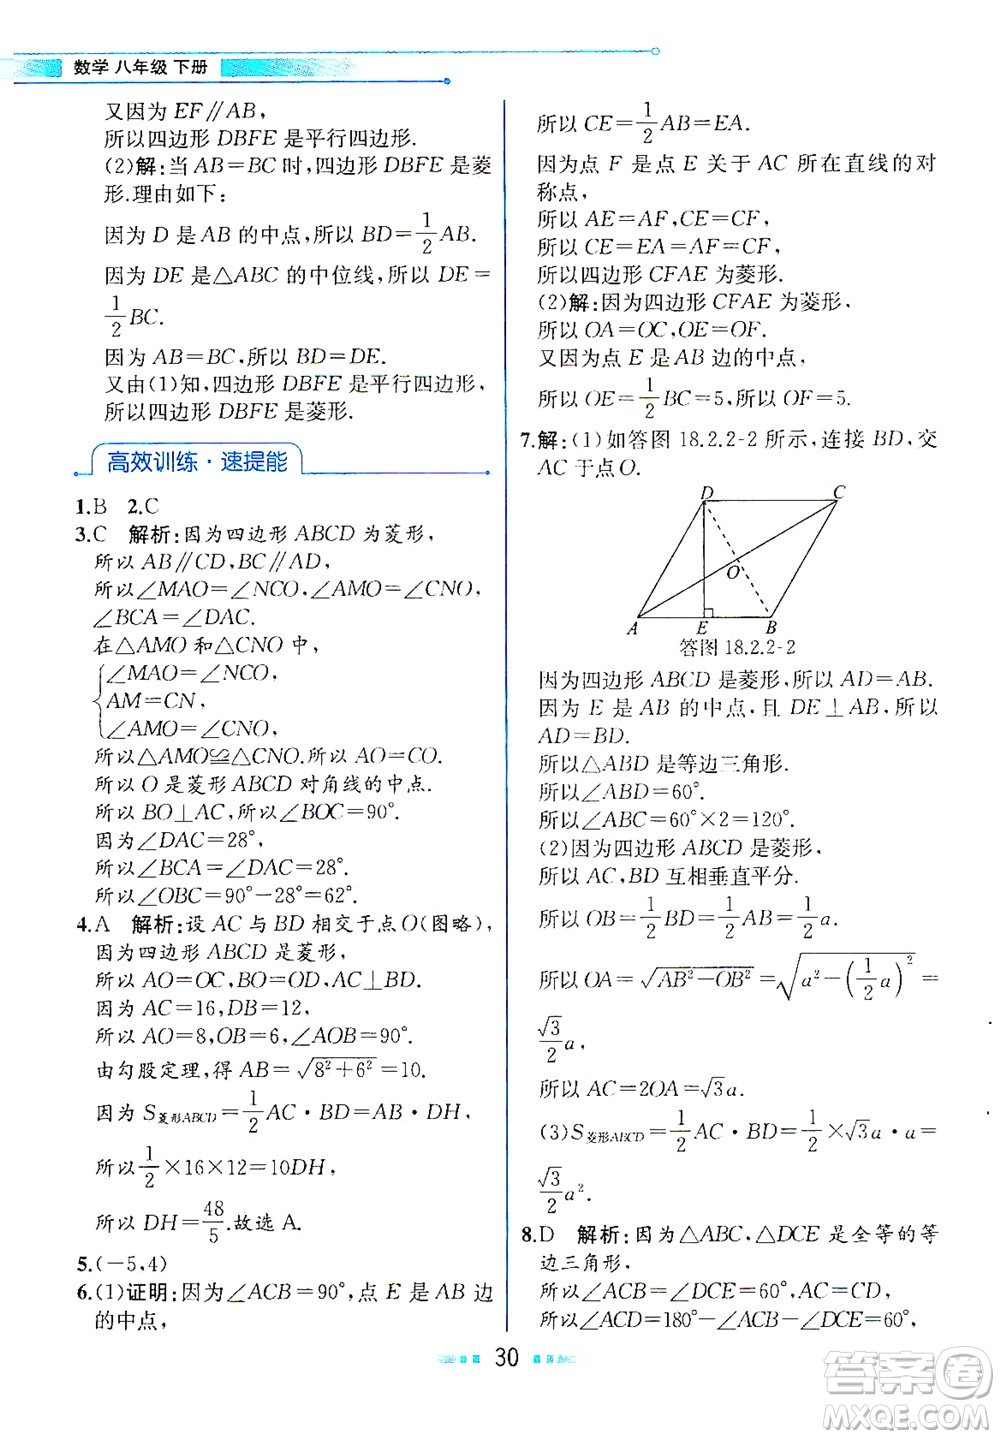 数学 八年级 下册
又因为 EF∥AB,
所以四边形 DBFE 是平行四边形.
(2)解:当 AB=BC时,四边形 DBFE 是菱
形.理由如下:
因为 D 是 AB 的中点,所以 BD=1/2AB.
因为 DE 是△ABC 的中位线,所以 DE=
1/2BC.
因为 AB=BC,所以 BD=DE.
又由(1)知,四边形 DBFE 是平行四边形,
所以四边形 DBFE 是菱形.
高效训练·速提能
1.B 2.C
3.C 解析:因为四边形 ABCD 为菱形,
所以 AB∥CD,BC∥AD,
所以∠MAO=∠NCO,∠AMO=∠CNO,
∠BCA=∠DAC.
在△AMO 和△CNO 中,
∠MAO=∠NCO,
AM=CN,
∠AMO=∠CNO,
所以△AMO≌△CNO.所以 AO=CO.
所以 O 是菱形 ABCD 对角线的中点.
所以 BO⊥AC,所以∠BOC=90°.
因为∠DAC=28°,
所以∠BCA=∠DAC=28°.
所以∠OBC=90°-28°=62°.
4.A 解析:设 AC 与 BD 相交于点 O(图略),
因为四边形 ABCD 是菱形,
所以 AO=OC,BO=OD,AC⊥BD.
因为 AC=16,DB=12,
所以 AO=8,OB=6,∠AOB=90°.
由勾股定理,得 AB=√(8²+6²)=10.
因为 S菱形ABCD=1/2AC·BD=AB·DH,
所以1/2×16×12=10DH,
所以 DH=48/5.故选 A.
5.(-5,4)
6.(1)证明:因为∠ACB=90°,点 E 是 AB 边
的中点,
所以 CE=1/2AB=EA.
因为点 F 是点 E 关于 AC 所在直线的对
称点,
所以 AE=AF,CE=CF,
所以 CE=EA=AF=CF,
所以四边形 CFAE 为菱形.
(2)解:因为四边形 CFAE 为菱形,
所以 OA=OC,OE=OF.
又因为点 E 是 AB 边的中点,
所以 OE=1/2BC=5,所以 OF=5.
7.解:(1)如答图 18.2.2-2 所示,连接 BD,交
AC 于点 O.
D C
O
A E B
答图 18.2.2-2
因为四边形 ABCD 是菱形,所以 AD=AB.
因为 E 是 AB 的中点,且 DE⊥AB,所以
AD=BD.
所以△ABD 是等边三角形.
所以∠ABD=60°.
所以∠ABC=60°×2=120°.
(2)因为四边形 ABCD 是菱形,
所以 AC,BD 互相垂直平分.
所以 OB=1/2BD=1/2AB=1/2a.
所以 OA=√(AB²-OB²)=√(a²-(1/2a)²)=
√3/2a,
所以 AC=2OA=√3a.
(3)S菱形ABCD=1/2AC·BD=1/2×√3a·a=
√3/2a².
8.D 解析:因为△ABC,△DCE 是全等的等
边三角形,
所以∠ACB=∠DCE=60°,AC=CD.
所以∠ACD=180°-∠ACB-∠DCE=60°.
30
答案圈
MXQE.COM